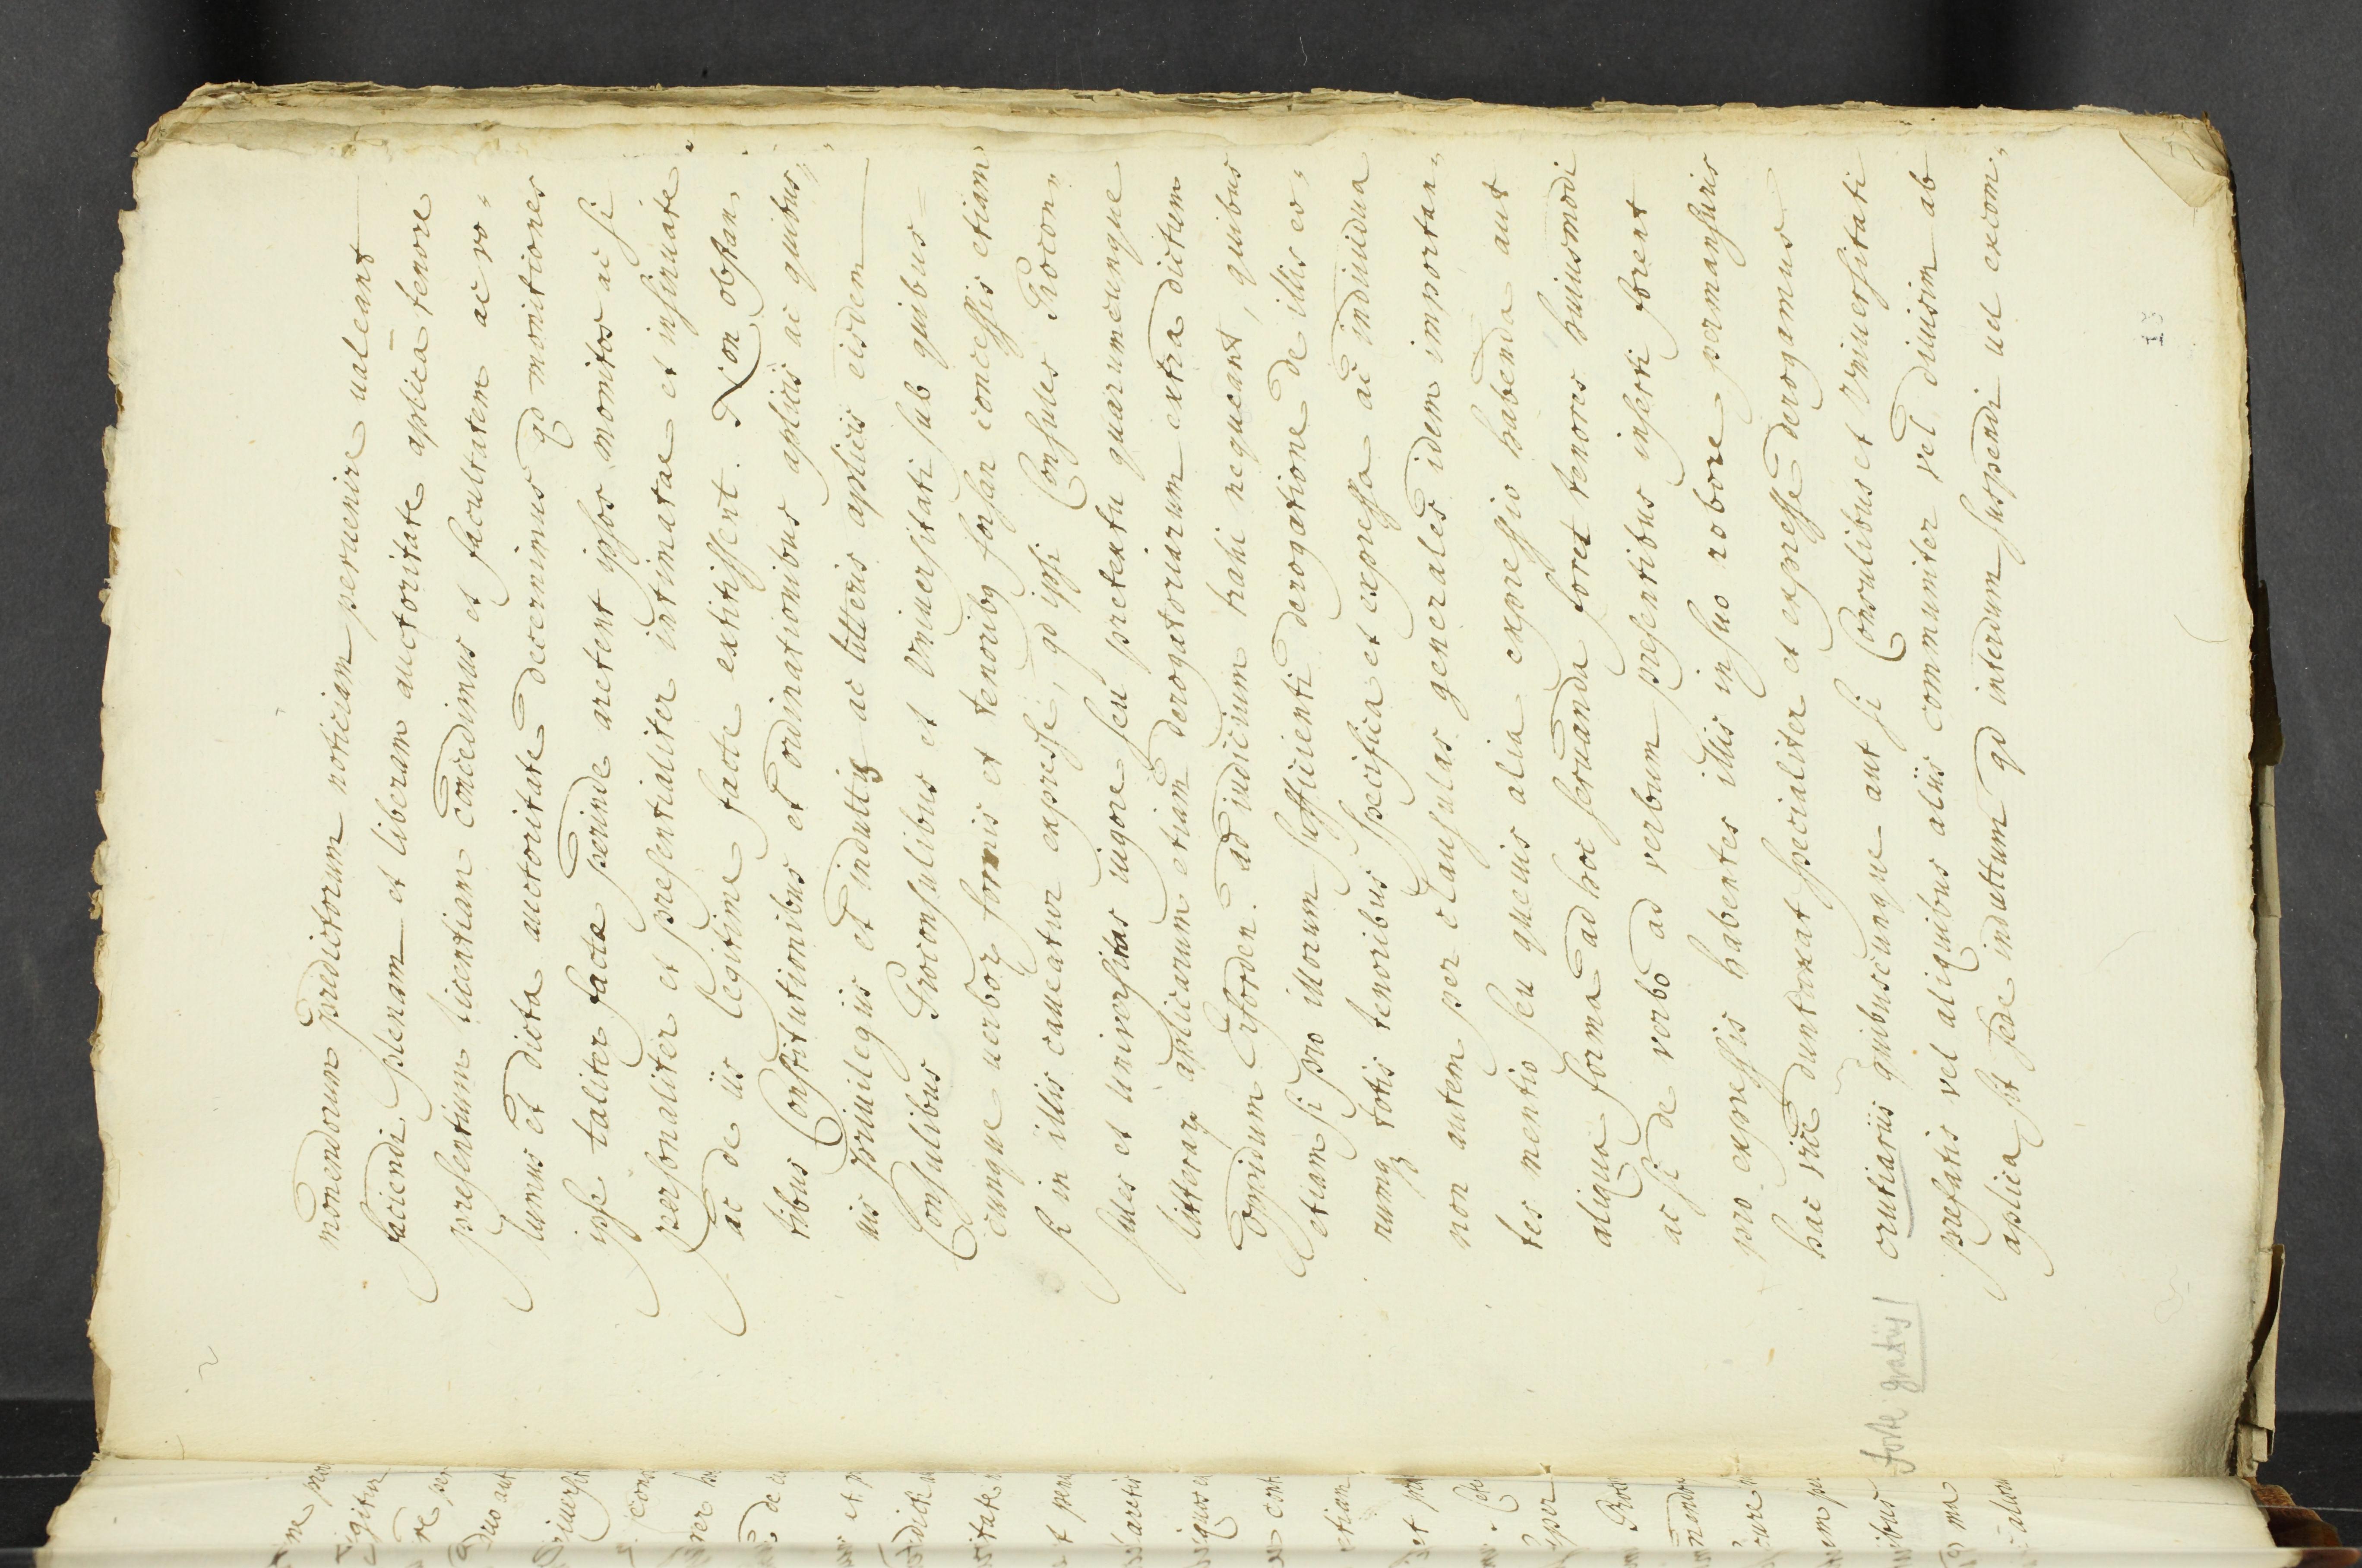 monendorum predictorum noticiam peruenire ualeant
faciendi plenam et liberam auctoritate aplica tenore
presentium licentiam concedimus et facultatem ac vo„
lumus et dicta auctoritate decernimus qd monitiones
ipse taliter facte perinde arctent ipsos monitos ac si
personaliter et presentialiter intimatae et insinuate
ac de iis legitime facte extitissent. Non obstan
tibus Constitutionibus et ordinationibus aplicis ac quibus„
uis priuilegiis et indultis ac litteris aplicis eisdem
Consulibus Proconsulibus et Vniuersitati sub quibus=
cunque uerbor formis et tenoribus forsan concessis etiam
si in illis caueatur expresse, qd ipsi Consules Procon„
sules et uniuersitas uigore seu pretextu quarumcunque
litterar aplicarum etiam derogatoriarum extra dictum
oppidum Erforden. ad iudicium trahi nequeant, quibus
etiam si pro illorum sufficienti derogatione de illis eo„
rumq totis tenoribus specifica et expressa ac indiuidua
non autem per clausulas generales idem importan„
tes mentio seu queuis alia expressio habenda aut
aliqua forma ad hoc seruanda foret tenores huiusmodi
ac si de verbo ad verbum presentibus inserti forent
pro expressis habentes illis in suo robore permansuris
hac vice duntaxat specialiter et expresse derogamus
crutiariis quibuscunque aut si Consulibus et Vniuersitati
prefatis vel aliquibus aliis communiter vel diuisim ab
aplica sit sede indultum qd interdum suspendi uel excom„
forte gratiis
13